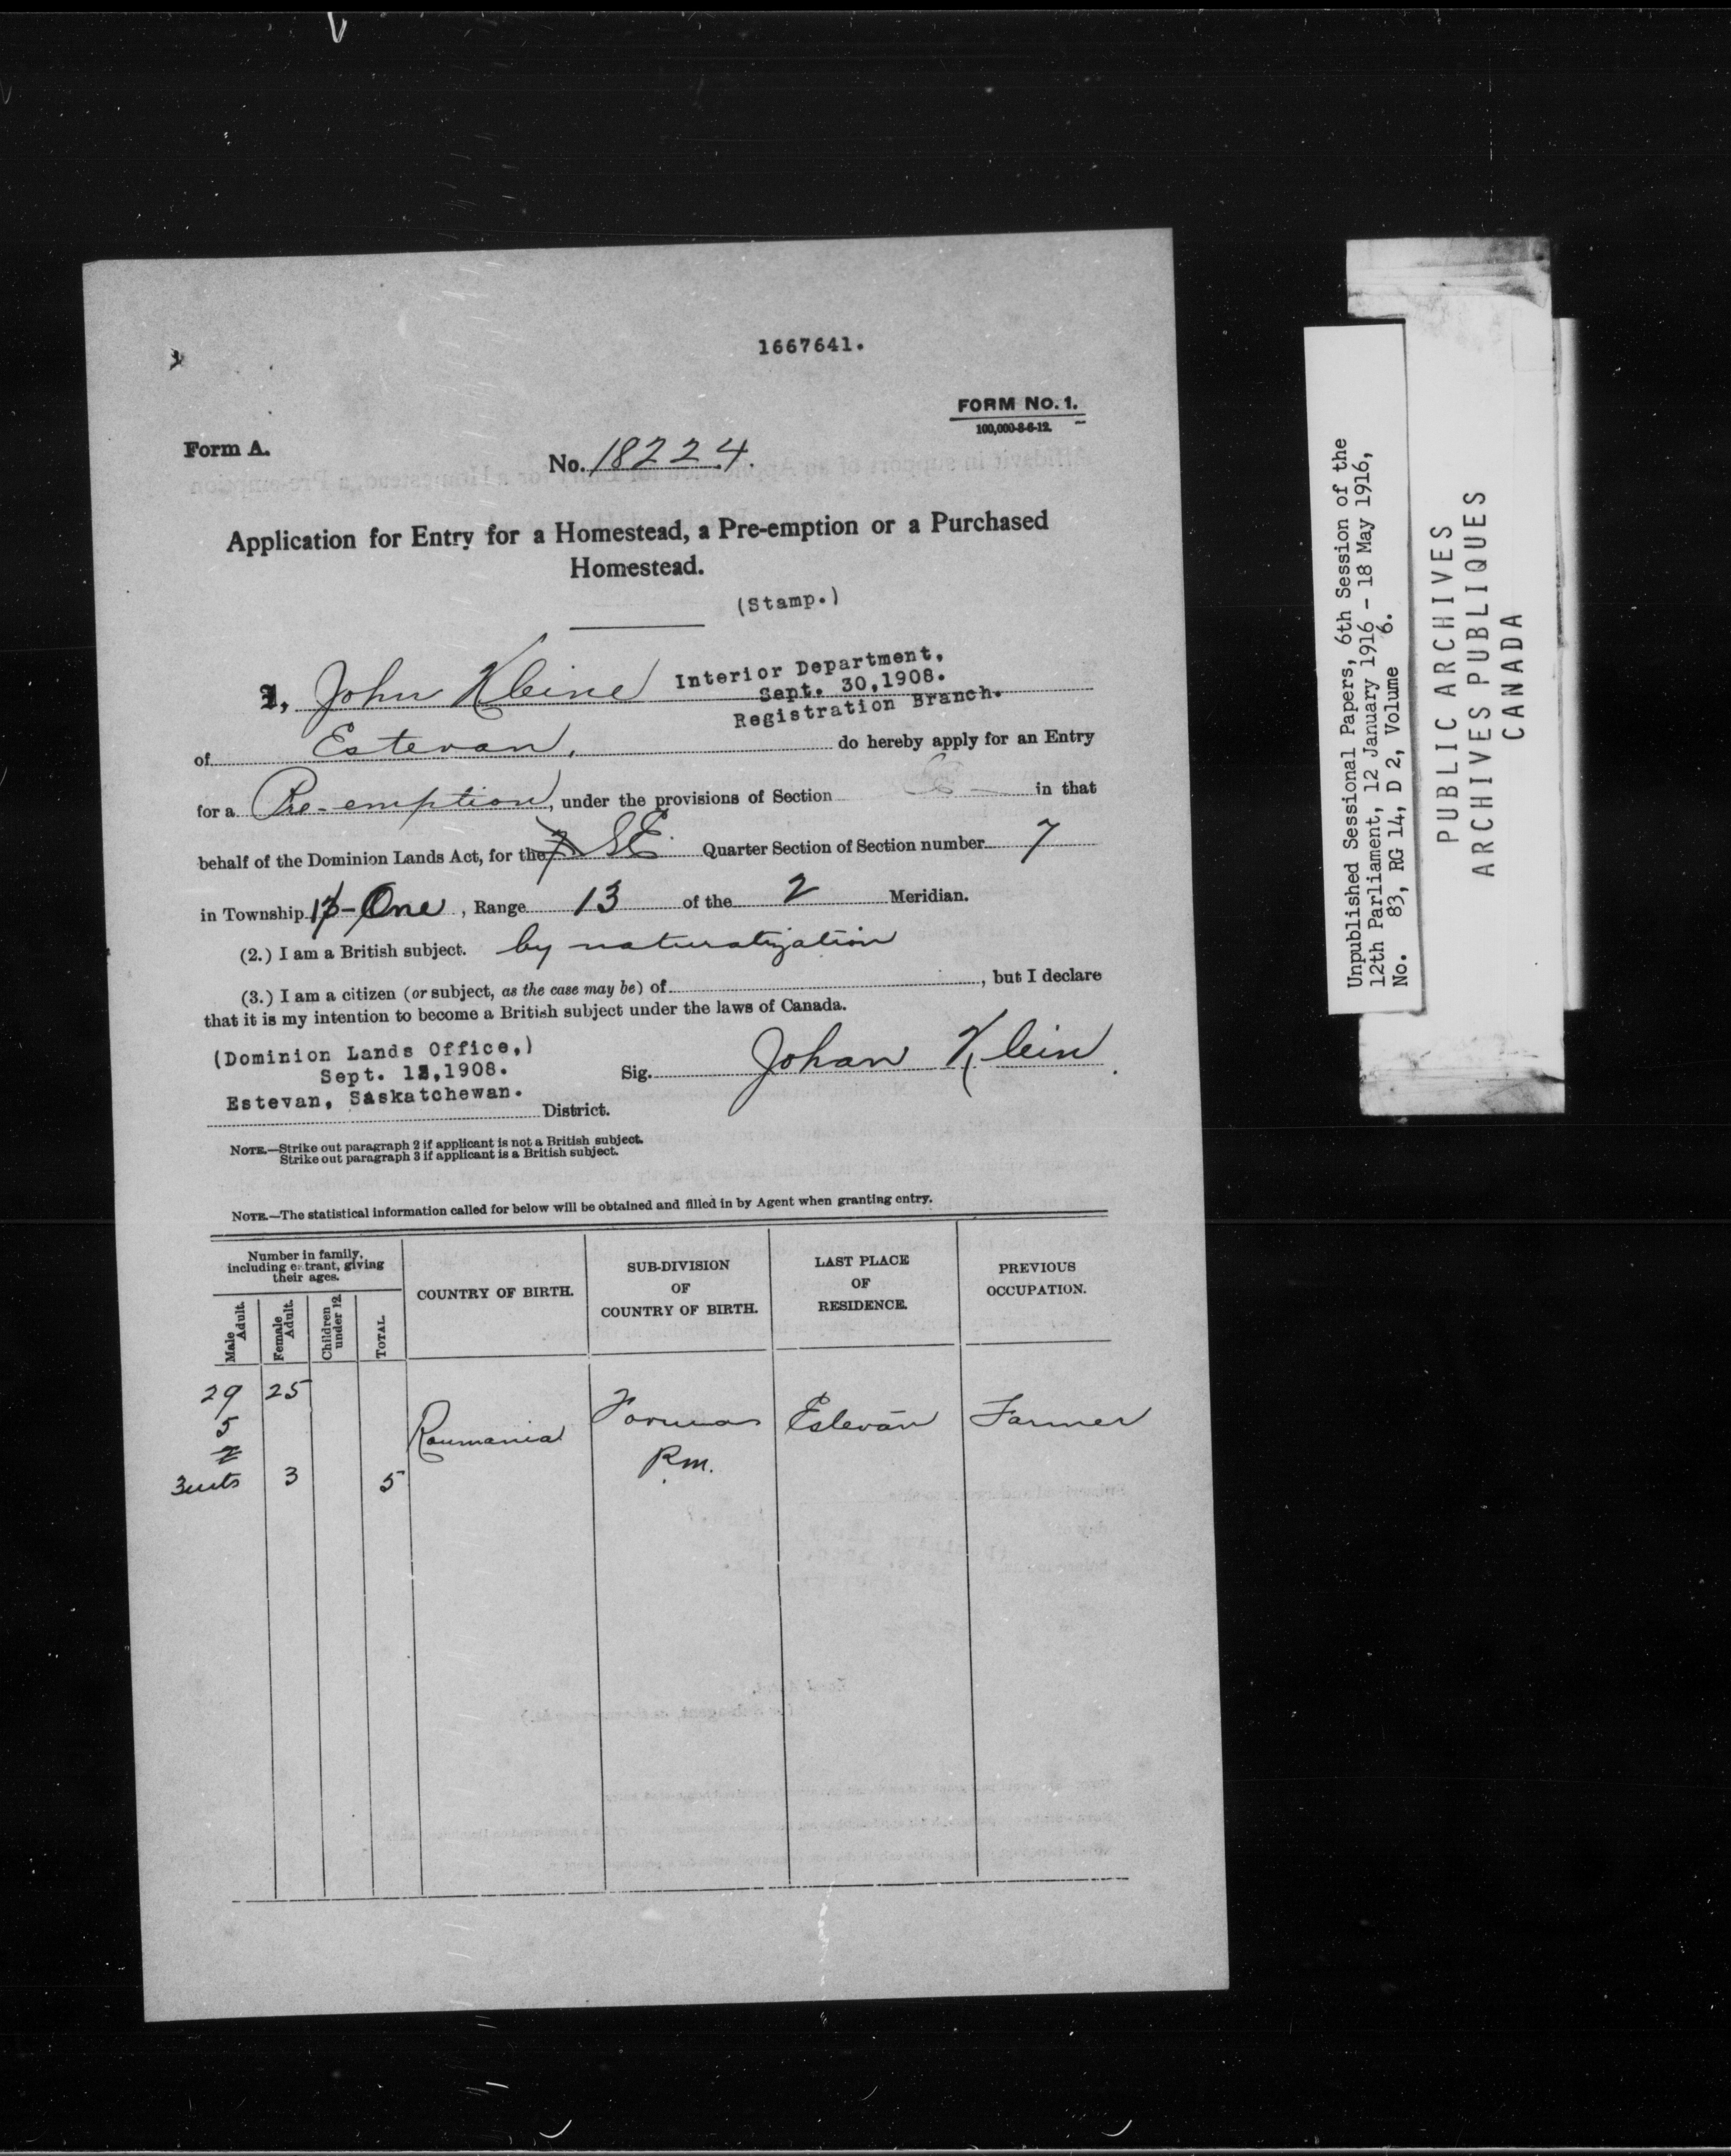 1667641.
FORM No. 1.
100,000-8-6-12.
Form A.
No. 18224.
Application for Entry for a Homestead, a Pre-emption or a Purchased
Homestead.
(Stamp.)
I, John Kleine
Interior Department,
Sept. 30,1908.
Registration Branch.
of Estevan. do hereby apply for an Entry
for a Pre-emption, under the provisions of Section in that
behalf of the Dominion Lands Act, for the 7 SE Quarter Section of Section number 7
in Township 13-One, Range 13 of the 2 Meridian.
(2.) I am a British subject. by naturatization
(3.) I am a citizen (or subject, as the case may be) of , but I declare
that it is my intention to become a British subject under the laws of Canada.
(Dominion Lands Office,)
Sept. 12,1908.
Estevan, Saskatchewan.
District.
Sig. Johan Klein
NOTE.—Strike out paragraph 2 if applicant is not a British subject.
Strike out paragraph 3 if applicant is a British subject.
NOTE.—The statistical information called for below will be obtained and filled in by Agent when granting entry.
Number in family,
including entrant, giving
their ages.
Male Adult.
Female Adult.
Children under 12
TOTAL
COUNTRY OF BIRTH.
SUB-DIVISION
OF
COUNTRY OF BIRTH.
LAST PLACE
OF
RESIDENCE.
PREVIOUS
OCCUPATION.
29 25
5
2
3 3 5
Roumania
Rm.
Estevan
Farmer
Unpublished Sessional Papers, 6th Session of the
12th Parliament, 12 January 1916 - 18 May 1916,
No. 83, RG 14, D 2, Volume 6.
PUBLIC ARCHIVES
ARCHIVES PUBLIQUES
CANADA